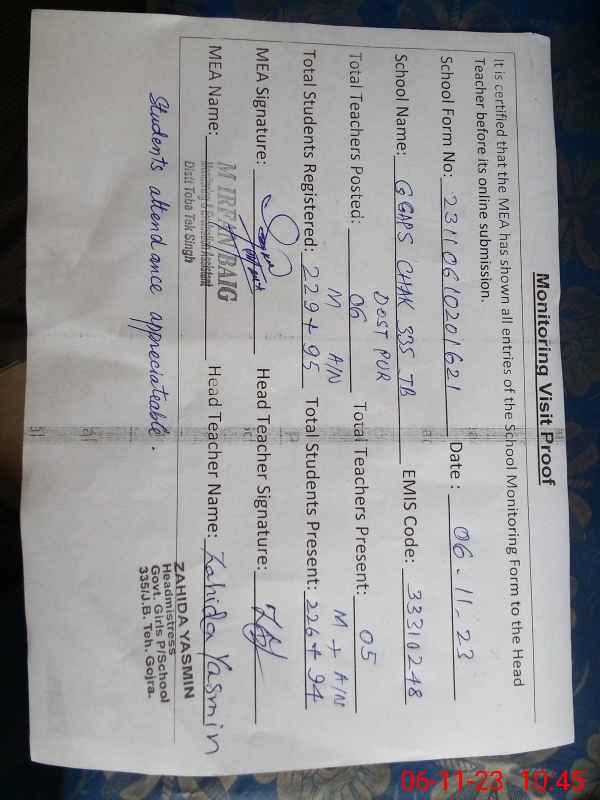 Monitoring Visit Proof
It is certified that the MEA has shown all entries of the School Monitoring Form to the Head
Teacher before its online submission.
School Form No: 23110610201621 Date: 06-11-23
School Name: GGAPS CHAK 335 TB EMIS Code: 33310248
DOST PUR
Total Teachers Posted: 06 Total Teachers Present: 05
M A/N M + A/N
Total Students Registered: 229+95 Total Students Present: 226+94
MEA Signature: Head Teacher Signature:
MEA Name: M IRFAN BAIG Head Teacher Name: Zahida Yasmin
Monitoring & Evaluation Assistant
Distt Toba Tek Singh
ZAHIDA YASMIN
Headmistress
Govt. Girls P/School
335/J.B. Teh. Gojra.
Students attendance appreciateable.
06-11-23 10:45